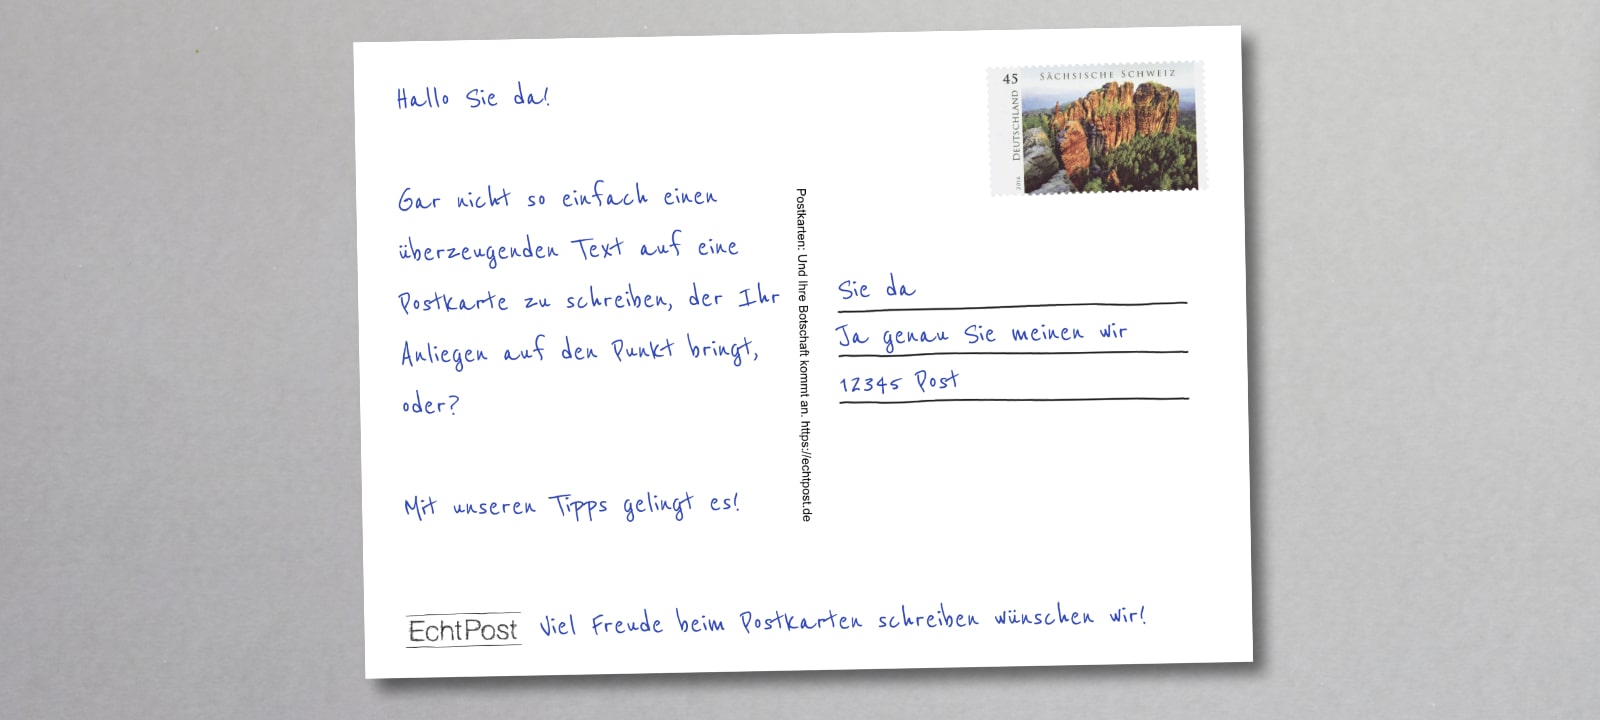 Hallo Sie da!
Gar nicht so einfach einen
überzeugenden Text auf eine
Postkarte zu schreiben, der Ihr
Anliegen auf den Punkt bringt,
oder?
Mit unseren Tipps gelingt es!
EchtPost Viel Freude beim Postkarten schreiben wünschen wir!
Postkarten: Und Ihre Botschaft kommt an. https://echtpost.de
45 SÄCHSISCHE SCHWEIZ
DEUTSCHLAND
2016
Sie da
Ja genau Sie meinen wir
12345 Post